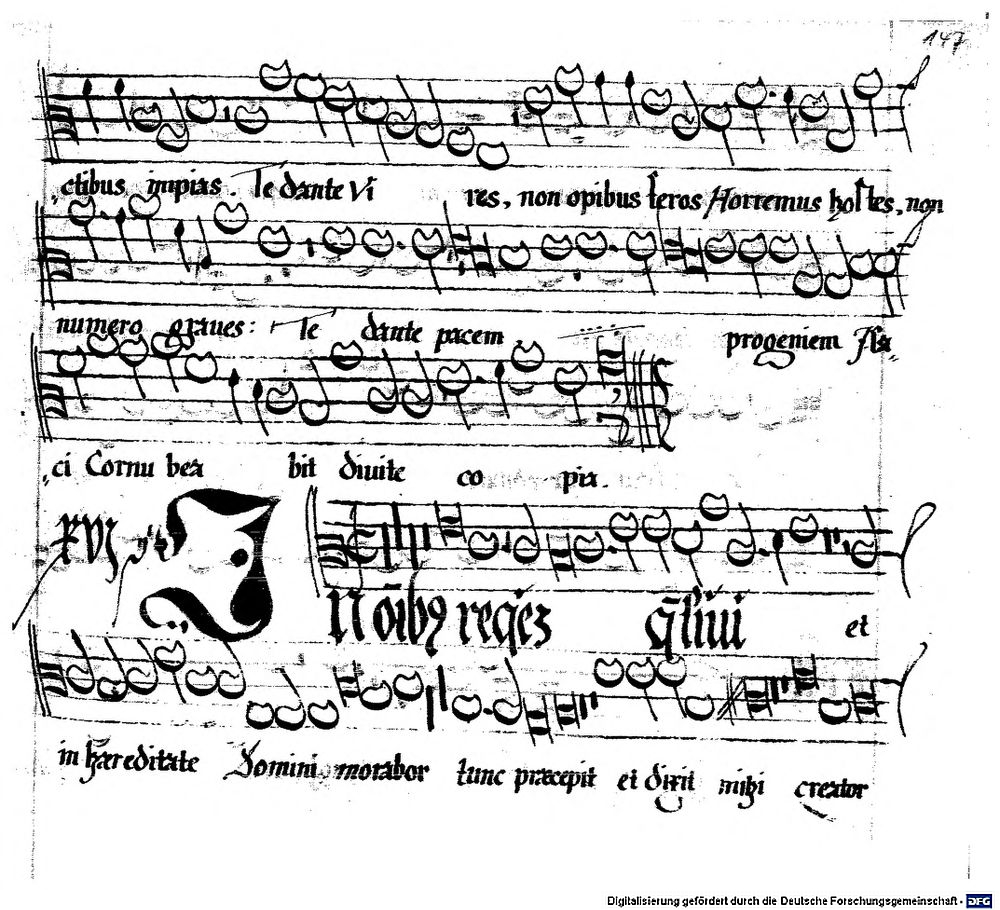 147
ctibus impias. le dante vi res, non opibus feros Horremus hostes, non
numero graues: le dante pacem progeniem Isa
ci Cornu bea bit diuite co pia.
XVI
IN oībꝫ reqiēz q̄siui et
in hæreditate Domini morabor tunc præcepit et dixit mihi creator
Digitalisierung gefördert durch die Deutsche Forschungsgemeinschaft - DFG